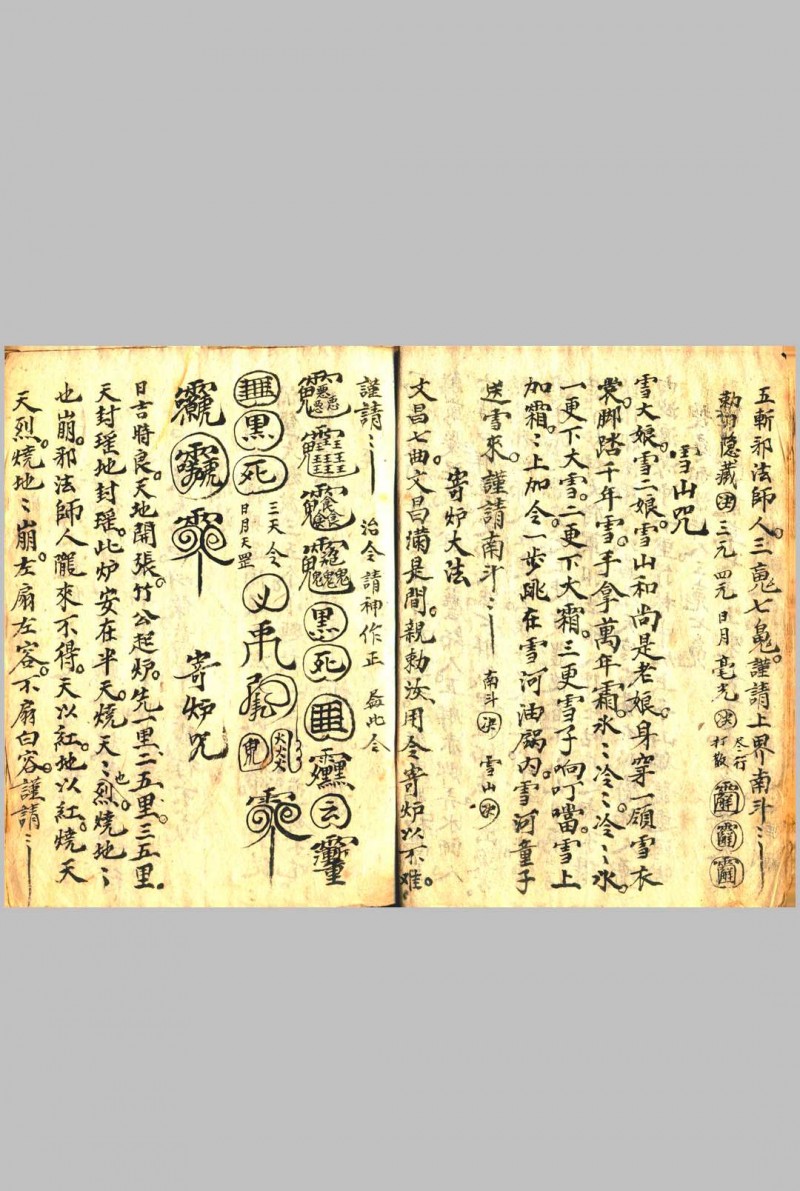 五斬邪法師人。三魂七魄。謹請上界南斗⺀
勅切隐藏 三元四元日月毫光 尽行打散
雪山咒
雪大娘。雪二娘。雪山和尚是老娘。身穿一領雪衣
裳。脚踏千年雪。手拿萬年霜。氷⺀冷⺀。冷⺀氷。
一更下大雪。二更下大霜。三更雪子响叮噹。雪上
加霜⺀上加。令一步跳在雪河油鍋内。雪河童子
送雪來。謹請南斗⺀ 南斗 雪山
寄炉大法
文昌七曲文昌满是間。親勅汝用令寄炉以不难。
謹請⺀ 治令請神作正 此令
黑 死 云
黑 死 三天令 日月天罡
寄炉咒
日吉時良。天地開張。竹公起炉。先一里二五里。三五里。
天封瑶地封瑶。此炉安在半天。燒天⺀也烈。燒地⺀
也崩。邪法師人隴來不得。天以紅。地以紅。燒天
天烈。燒地⺀崩。左扇左容。不扇白容。謹請⺀